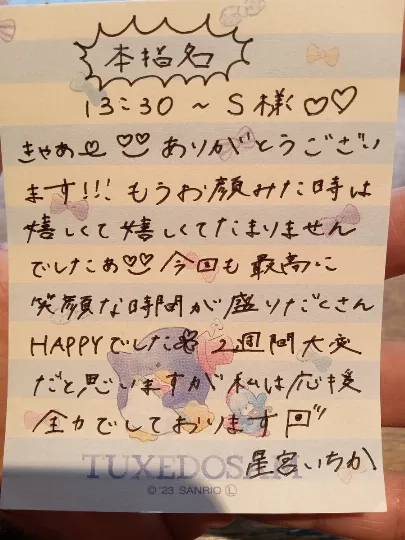 本指名
13:30～S様♡♡
きゃあ ありがとうござい
ます!!! もうお顔みた時は
嬉しくて嬉しくてたまりません
でしたあ 今回も最高に
笑顔な時間が盛りだくさん
HAPPYでした 2週間大変
だと思いますが私は応援
全力でしております
星宮いちか
TUXEDOSAM
© '23 SANRIO Ⓛ